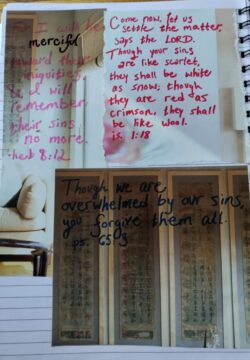 For I will be
merciful
toward their
iniquities,
& I will
remember
their sins
no more.
heb 8:12
Come now, let us
settle the matter,
says the LORD.
Though your sins
are like scarlet,
they shall be white
as snow; though
they are red as
crimson, they shall
be like wool.
is 1:18
Though we are
overwhelmed by our sins,
you forgive them all.
ps. 65:3